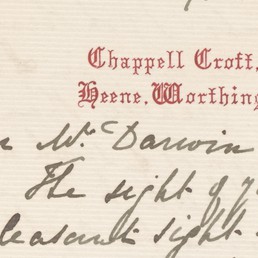 Chappell Croft,
Heene, Worthing
Mr. Darwin
The sight of
pleasant sight